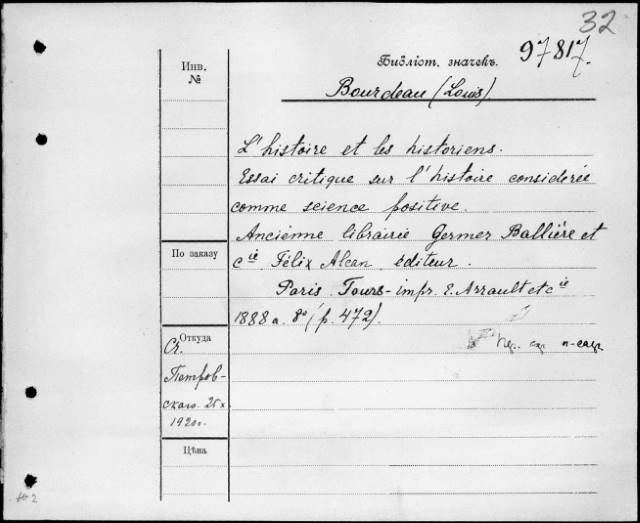 32
Библіот. значекъ. 97817.
Инв.
№
Bourdeau (Louis)
L'histoire et les historiens.
Essai critique sur l'histoire considerée
comme science positive.
Ancienne librairie Germer Ballière et
Cie Félix Alcan éditeur.
Paris. Tours - impr. E. Arrault et Cie
1888 a. 8° (p. 472).
По заказу
Откуда
Ст.
Петров-
скаго. 25 x
1920 г.
Цѣна
№ 2